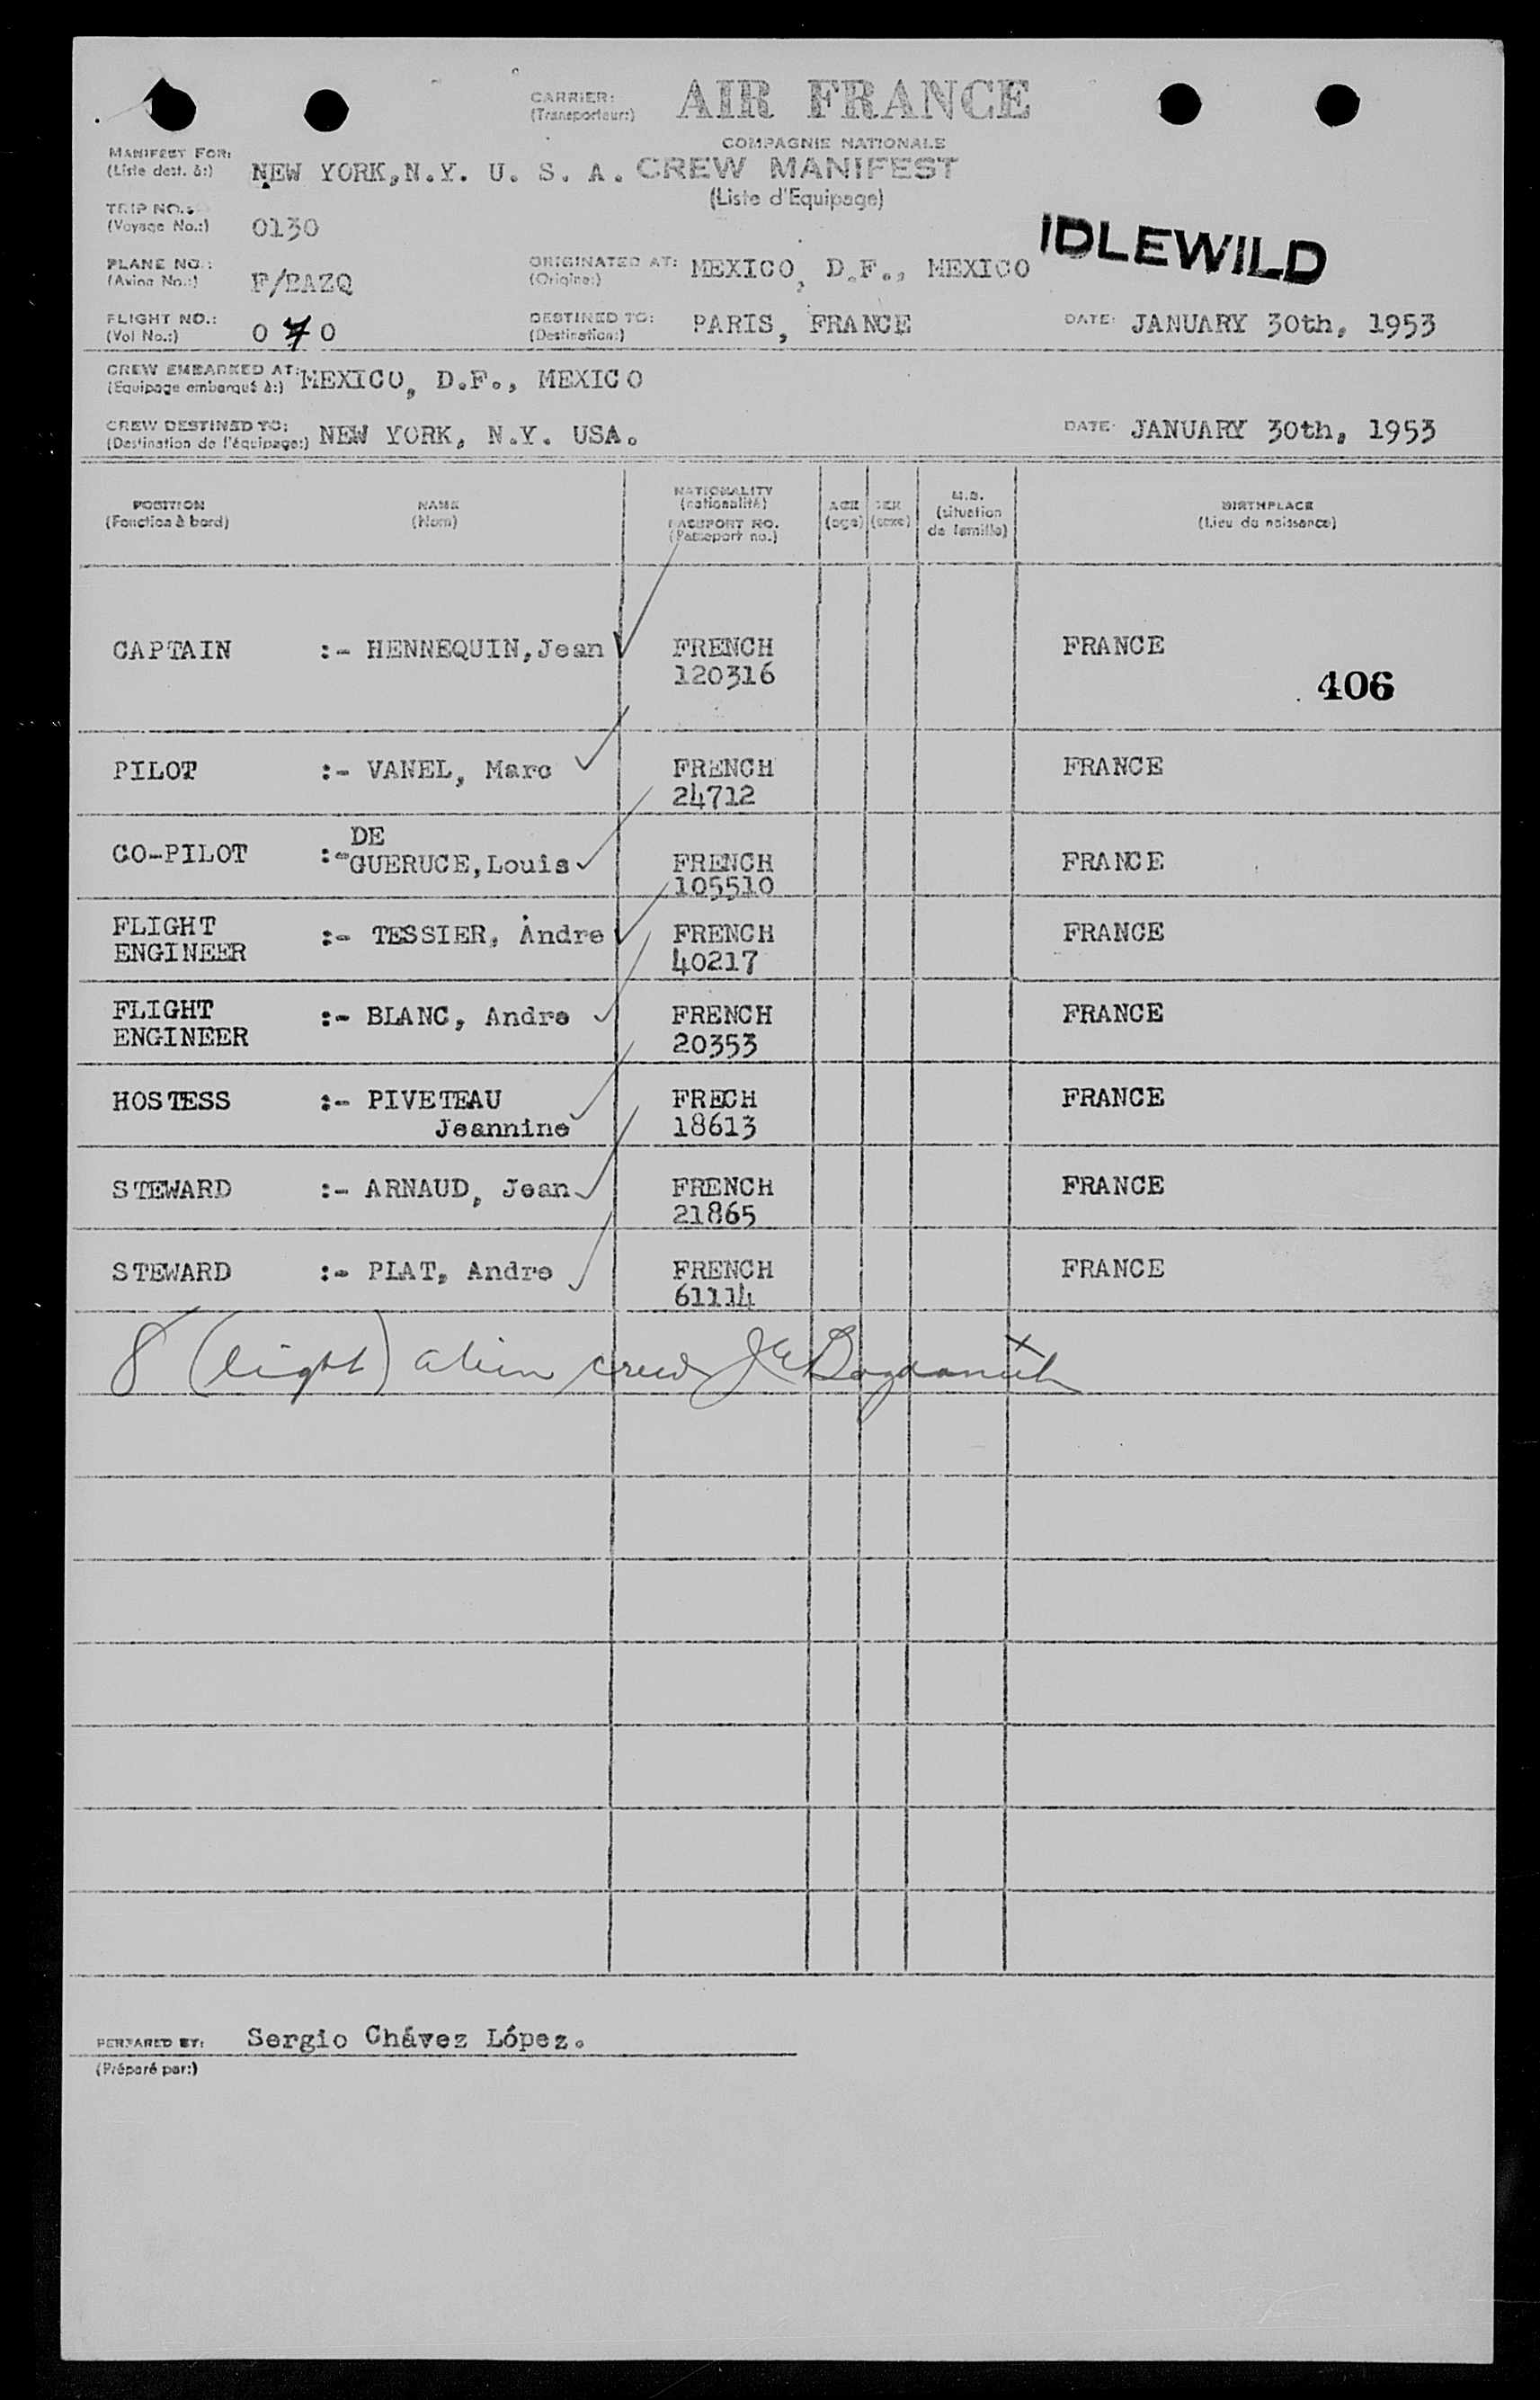 CARRIER: AIR FRANCE
(Transporteur:)
COMPAGNIE NATIONALE
MANIFEST FOR: NEW YORK,N.Y. U. S. A. CREW MANIFEST
(Liste dest. à:)
(Liste d'Equipage)
TRIP NO.: 0130
(Voyage No.:)
IDLEWILD
PLANE NO.: F/BAZQ ORIGINATED AT: MEXICO, D.F., MEXICO
(Avion No.:) (Origine:)
FLIGHT NO.: 070 DESTINED TO: PARIS, FRANCE DATE: JANUARY 30th, 1953
(Vol No.:) (Destination:)
CREW EMBARKED AT: MEXICO, D.F., MEXICO
(Equipage embarqué à:)
CREW DESTINED TO: NEW YORK, N.Y. USA. DATE: JANUARY 30th, 1953
(Destination de l'équipage:)
POSITION NAME NATIONALITY AGE SEX M.S. BIRTHPLACE
(Fonction à bord) (Nom) (nationalité) (age) (sexe) (situation de famille) (Lieu de naissance)
PASSPORT NO.
(Passeport no.)
CAPTAIN :- HENNEQUIN,Jean FRENCH FRANCE
120316
406
PILOT :- VANEL, Marc FRENCH FRANCE
24712
DE
CO-PILOT :- GUERUCE,Louis FRENCH FRANCE
105510
FLIGHT
ENGINEER :- TESSIER, Andre FRENCH FRANCE
40217
FLIGHT
ENGINEER :- BLANC, Andre FRENCH FRANCE
20353
HOSTESS :- PIVETEAU FRECH FRANCE
Jeannine 18613
STEWARD :- ARNAUD, Jean FRENCH FRANCE
21865
STEWARD :- PLAT, Andre FRENCH FRANCE
61114
8 (eight) alien crew
PERPARED BY: Sergio Chávez López.
(Préparé par:)